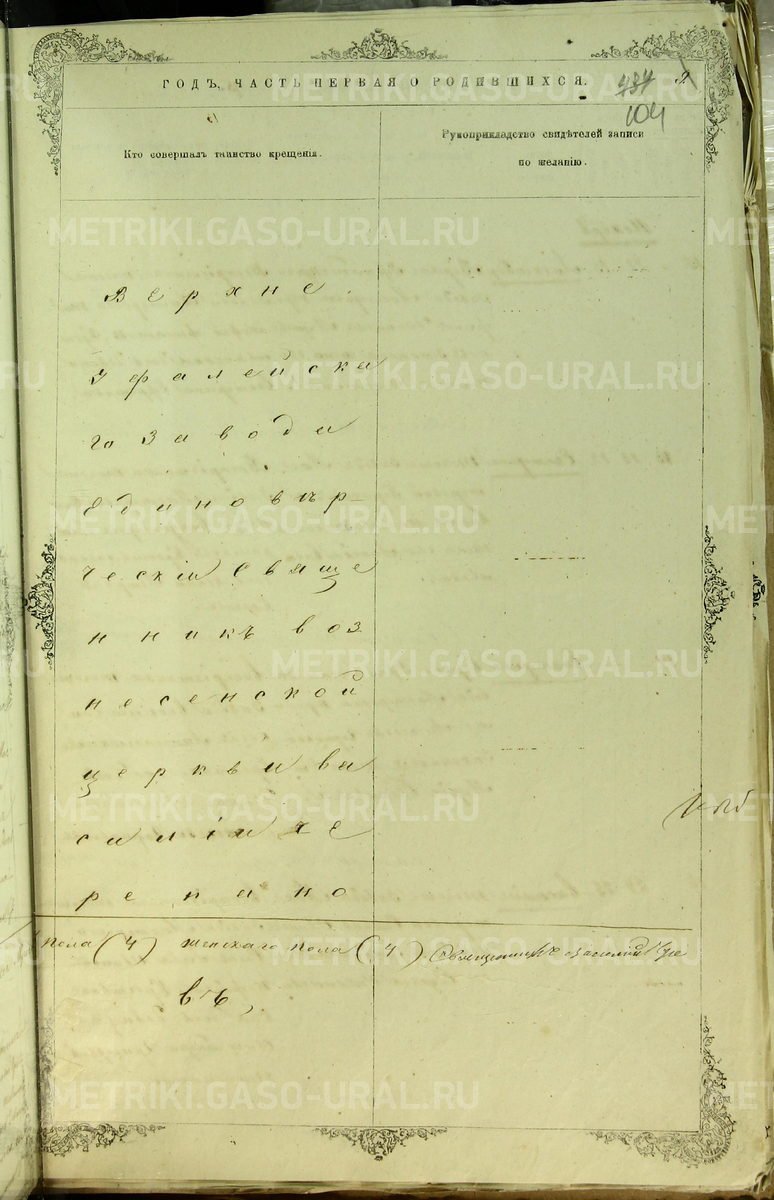 ГОДЪ, ЧАСТЬ ПЕРВАЯ О РОДИВШИХСЯ.
104
Кто совершалъ таинство крещенія.
Рукоприкладство свидѣтелей записи
по желанію.
Верхне
Уфалейска
го завода
Единовѣр-
ческій Свяще
нникъ Воз
несенской
церкви Ва
силій Че
репано
пола (4) женскаго пола (4) Священникъ Василий Чере
въ,
METRIKI.GASO-URAL.RU